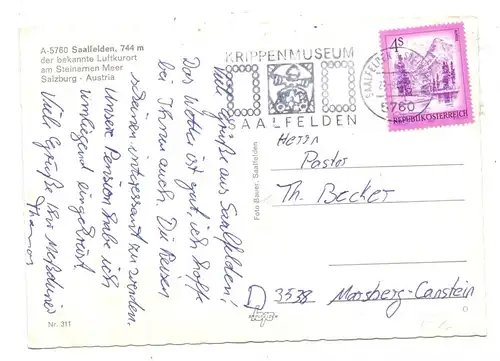 A-5760 Saalfelden, 744 m
der bekannte Luftkurort
am Steinernen Meer
Salzburg - Austria
Viele Grüße aus Saalfelden!
Das Wetter ist gut, ich hoffe
bei Ihnen auch. Die Reisen
scheinen interessant zu werden.
Unsere Pension habe ich
umliegend eingekreist
Viele Grüße Ihr Meßdiener
Thomas
Nr. 311
Foto Bauer, Saalfelden
KRIPPENMUSEUM
SAALFELDEN
SAALFELDEN
5760
4S
REPUBLIK ÖSTERREICH
Herrn
Pastor
Th. Becker
D 3538 Marsberg-Canstein